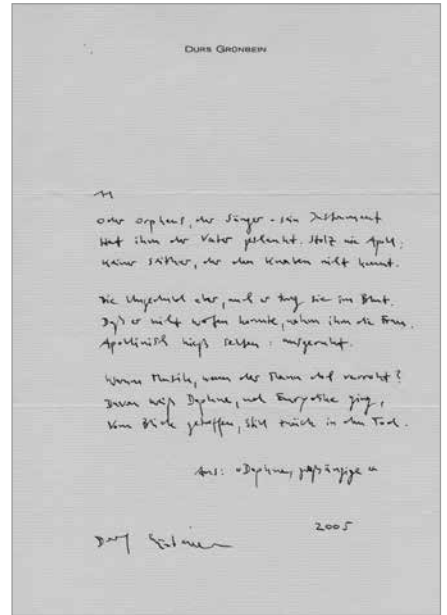 DURS GRÜNBEIN
11
Oder Orpheus, der Sänger – sein Instrument
Hat ihm der Vater geschenkt. Stolz wie Apoll,
Keiner seither, der den Knaben nicht kennt.
Die Ungeduld aber, auch er trug sie im Blut.
Daß er nicht warten konnte, nahm ihm die Frau.
Apollinisch hieß selten: ausgeruht.
Musik, wenn der Mann doch verroht?
Davon weiß Daphne, und Eurydike ging,
Vom Blick getroffen, still zurück in den Tod.
Aus: »Daphne, «
2005
Durs Grünbein